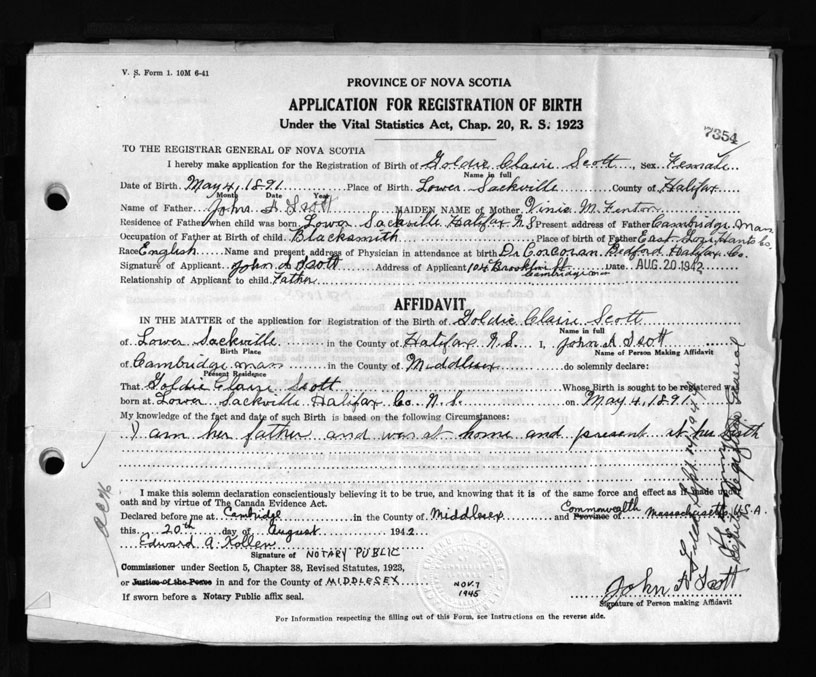 V. S. Form 1. 10M 6-41
PROVINCE OF NOVA SCOTIA
APPLICATION FOR REGISTRATION OF BIRTH
Under the Vital Statistics Act, Chap. 20, R. S. 1923
7354
TO THE REGISTRAR GENERAL OF NOVA SCOTIA
I hereby make application for the Registration of Birth of Goldie Claire Scott, Sex Female
Name in full
Date of Birth May 4, 1891 Place of Birth Lower Sackville County of Halifax
Month Date Year
Name of Father John A Scott MAIDEN NAME of Mother Vinie M. Fenton
Residence of Father when child was born Lower Sackville Halifax N S Present address of Father Cambridge Mass
Occupation of Father at Birth of child Blacksmith Place of birth of Father East Gore Hants Co.
Race English Name and present address of Physician in attendance at birth Dr Corcoran Bedford Halifax Co.
Signature of Applicant John A Scott Address of Applicant 104 Brookline St Cambridge Date AUG. 20 1942
Relationship of Applicant to child Father
AFFIDAVIT
IN THE MATTER of the application for Registration of the Birth of Goldie Claire Scott
Name in full
of Lower Sackville in the County of Halifax N.S. I, John A Scott
Birth Place Name of Person Making Affidavit
of Cambridge Mass in the County of Middlesex do solemnly declare:
Present Residence
That Goldie Claire Scott Whose Birth is sought to be registered was
born at Lower Sackville Halifax Co. N. S. on May 4, 1891
My knowledge of the fact and date of such Birth is based on the following Circumstances:
I am her father and was at home and present at her birth
I make this solemn declaration conscientiously believing it to be true, and knowing that it is of the same force and effect as if made under
oath and by virtue of The Canada Evidence Act.
Commonwealth
Declared before me at Cambridge in the County of Middlesex and Province of Massachusetts, U.S.A.
this 20th day of August 1942
Edward A. Kollen
Signature of NOTARY PUBLIC
Commissioner under Section 5, Chapter 38, Revised Statutes, 1923,
or Justice of the Peace in and for the County of MIDDLESEX
NOV. 7
1945
If sworn before a Notary Public affix seal.
John A Scott
Signature of Person making Affidavit
For Information respecting the filling out of this Form, see Instructions on the reverse side.
Filed Sept.
Deputy Registrar General